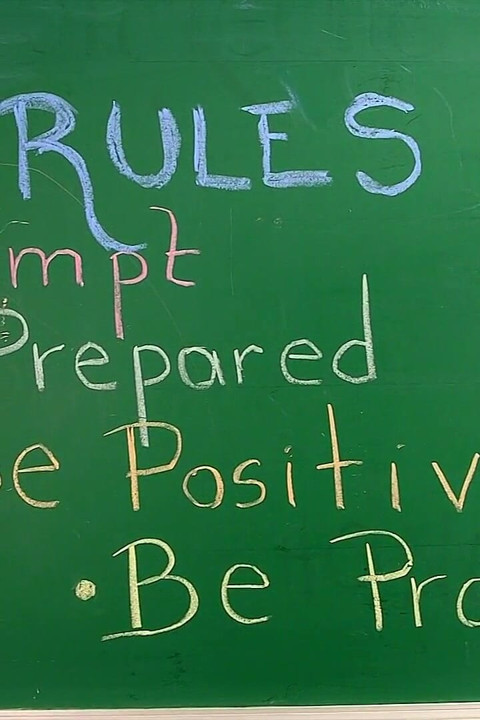 RULES
mpt
Prepared
e Positiv
• Be Pro